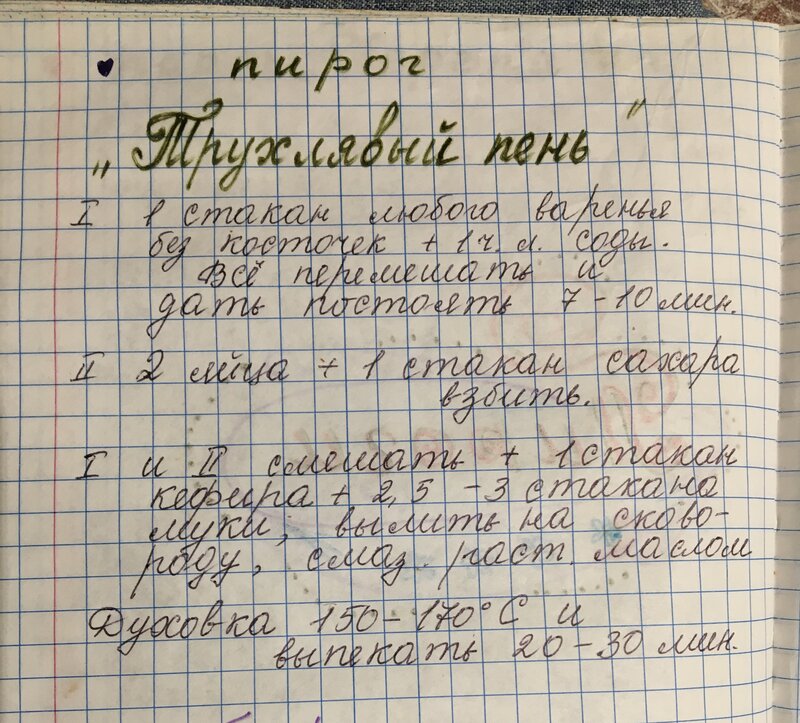 пирог
„Трухлявый пень"
I 1 стакан любого варенья
без косточек + 1 ч. л. соды.
Всё перемешать и
дать постоять 7-10 мин.
II 2 яйца + 1 стакан сахара
взбить.
I и II смешать + 1 стакан
кефира + 2,5 - 3 стакана
муки, вылить на сково-
роду, смаз. раст. маслом
Духовка 150-170°С и
выпекать 20-30 мин.